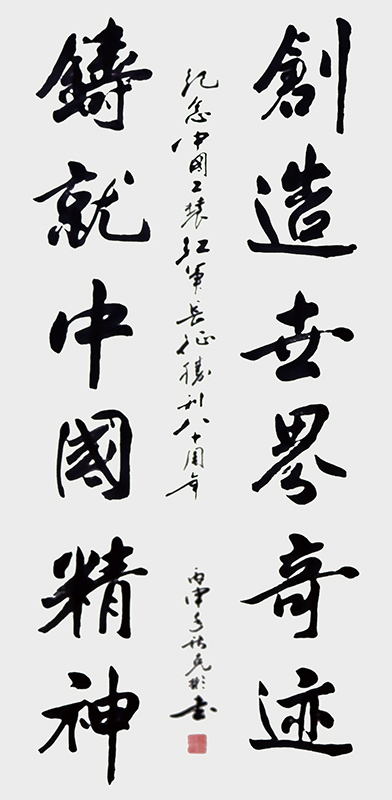 創造世界奇迹
鑄就中國精神
紀念中國工農紅軍長征勝利八十周年
丙申冬 書